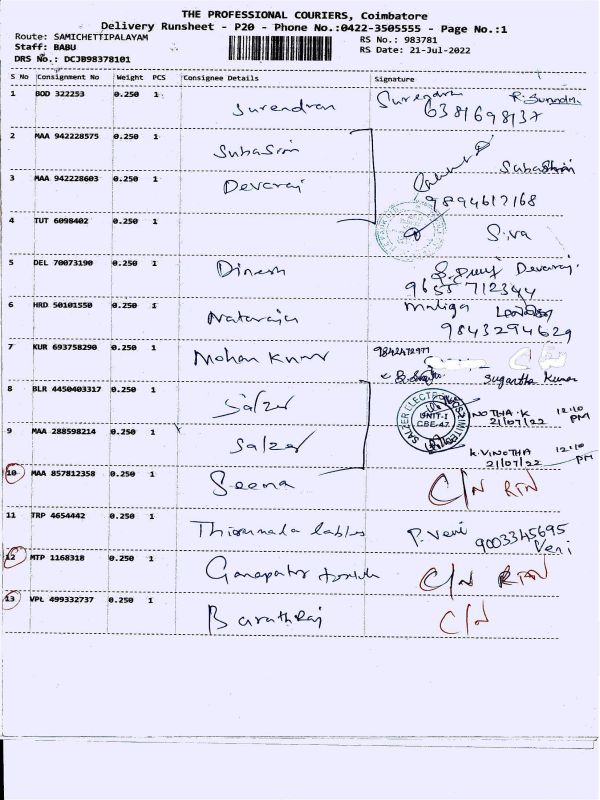 THE PROFESSIONAL COURIERS, Coimbatore
Delivery Runsheet - P20 - Phone No.:0422-3505555 - Page No.:1
Route: SAMICHETTIPALAYAM
RS No.: 983781
Staff: BABU
RS Date: 21-Jul-2022
DRS No.: DCJB98378101
S No Consignment No Weight PCS Consignee Details Signature
1 BOD 322253 0.250 1 Surendran Surendra R. Surendra
6381698137
2 MAA 942228575 0.250 1 SubaSini SubaShini
3 MAA 942228603 0.250 1 Devaraj
9894617168
4 TUT 6098402 0.250 1 Siva
5 DEL 70073190 0.250 1 Dinesh Devaraj
9655 712344
6 HRD 50101550 0.250 1 Natarajan Maliga
9843294629
7 KUR 693758290 0.250 1 Mohan Kumar 9842472977
C/N
Sugantha Kumar
8 BLR 4450403317 0.250 1 Salzer NOTHA.K 12:10 PM
21/07/22
SALZER ELECTRONICS LIMITED
UNIT-I
CBE-47.
9 MAA 288598214 0.250 1 Salzer K.VINOTHA 12:10 PM
21/07/22
10 MAA 857812358 0.250 1 Seema C/N RTN
11 TRP 4654442 0.250 1 P. Veni 9003345695
Veni
12 MTP 1168318 0.250 1 C/N RTN
13 VPL 499332737 0.250 1 BarathRaj C/N